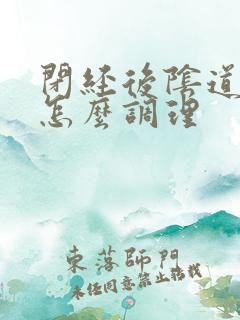 閉經後陰道
怎麼調理
東落師門
未經同意禁止搭載